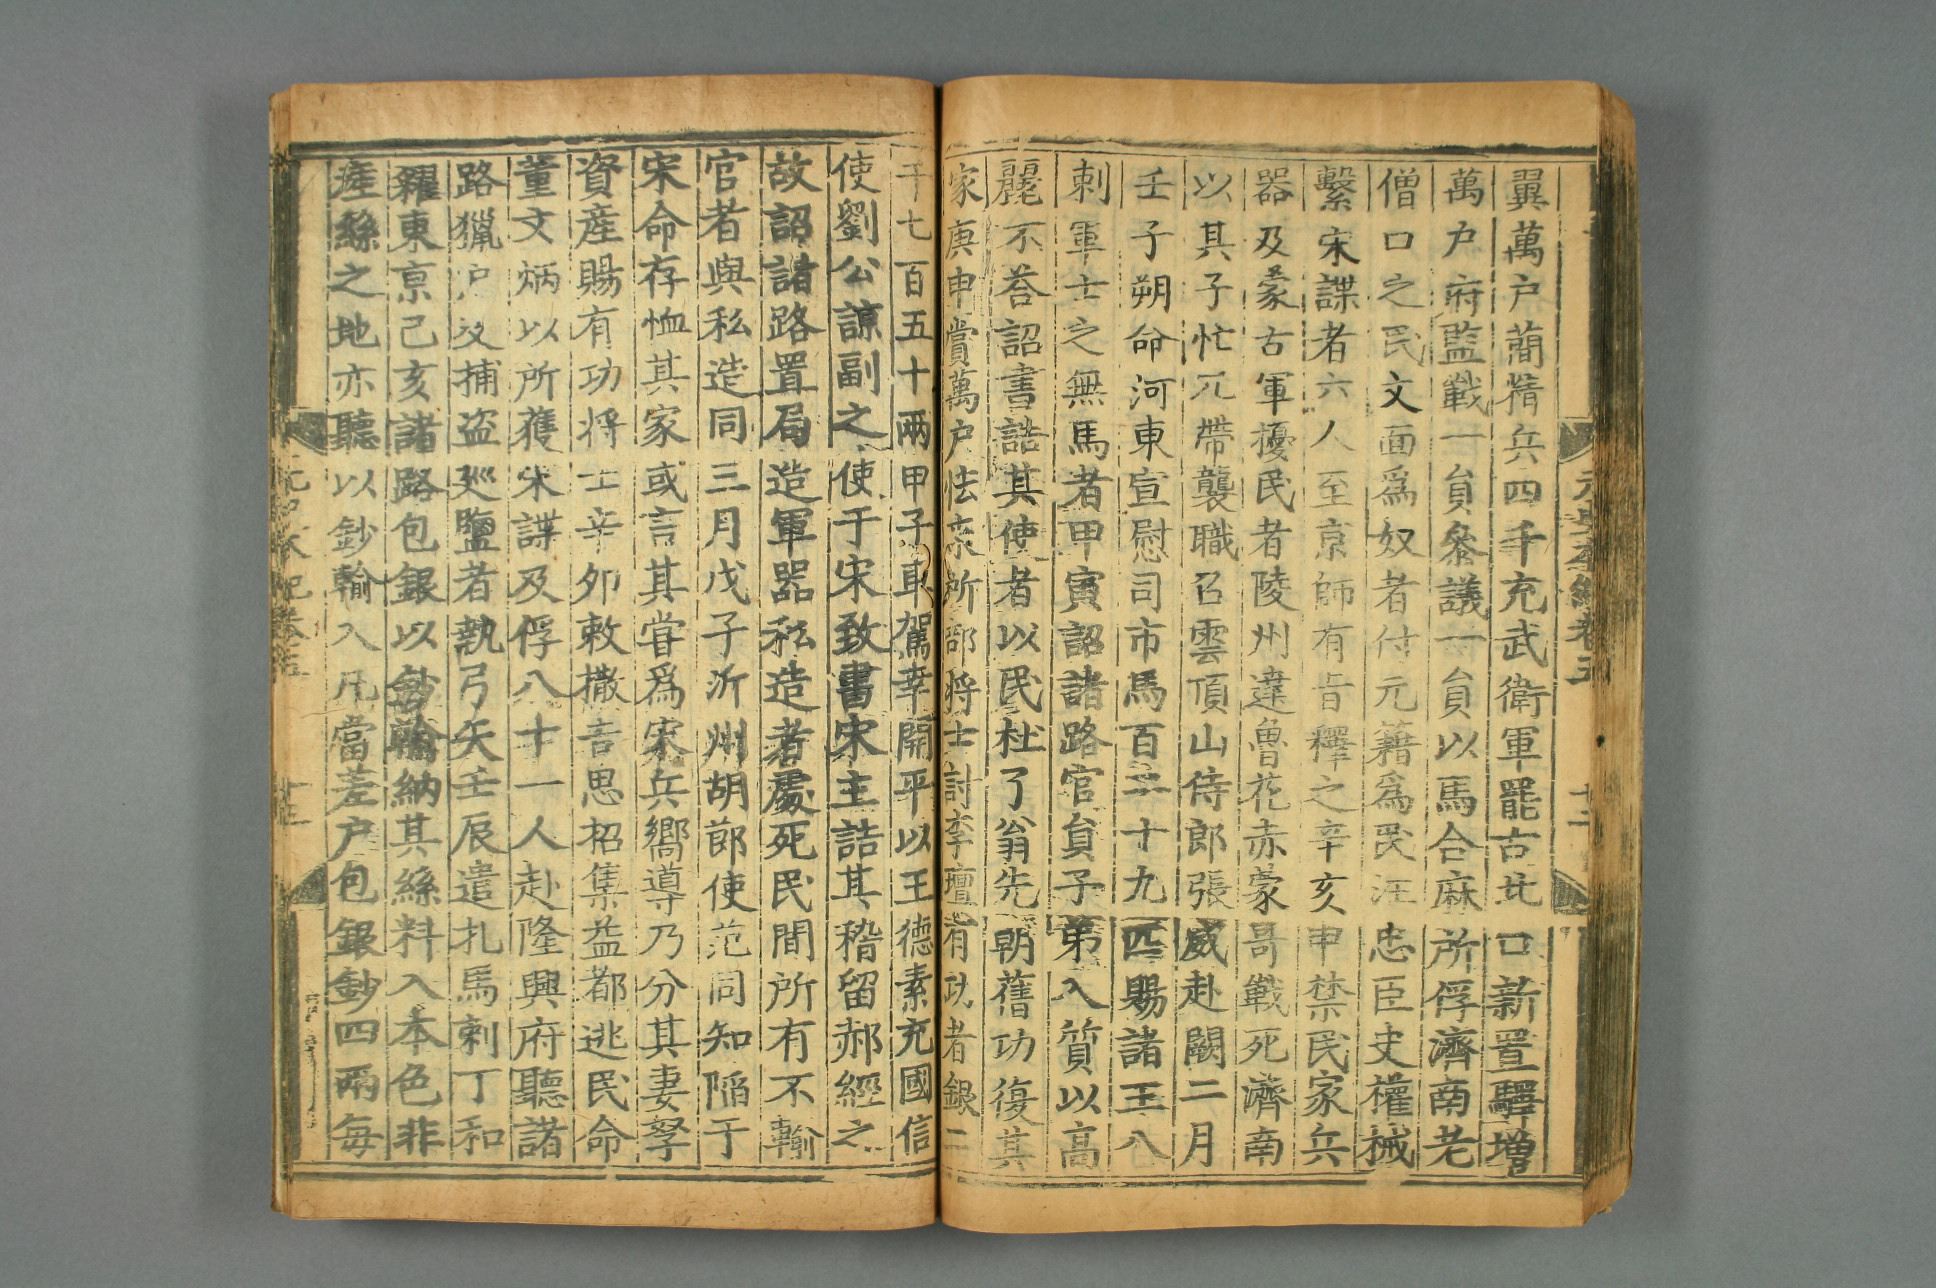 元史本紀卷五
十二
翼萬戶蕳精兵四千充武衛軍罷古北口新置驛增
萬戶府監戰一貟叅議一貟以馬合麻所俘濟南老
僧口之民文面爲奴者付元籍爲民汪忠臣史權械
繫宋諜者六人至京師有旨釋之辛亥申禁民家兵
器及蒙古軍擾民者陵州達魯花赤蒙哥戰死濟南
以其子忙兀帶襲職召雲頂山侍郎張威赴闕二月
壬子朔命河東宣慰司市馬百二十九匹賜諸王八
剌軍士之無馬者甲寅詔諸路官貟子第入質以高
麗不荅詔書詰其使者以民杜了翁先朝舊功復其
家庚申賞萬户怯來所部將士討李璮有功者銀二
千七百五十兩甲子車駕幸開平以王德素充國信
使劉公諒副之使于宋致書宋主詰其稽留郝經之
故詔諸路置局造軍器私造者處死民間所有不輸
官者與私造同三月戊子沂州胡節使范同知陷于
宋命存恤其家或言其甞爲宋兵嚮導乃分其妻孥
資産賜有功将士辛夘敕撒吉思招集益都逃民命
董文炳以所獲宋諜及俘八十一人赴隆興府聽諸
路獵户及捕盗廵鹽者執弓矢壬辰遣扎馬剌丁和
糴東京己亥諸路包銀以鈔輸納其絲料入本色非
産絲之地亦聽以鈔輸入凡當差户包銀鈔四兩每
元史本紀卷五
十三